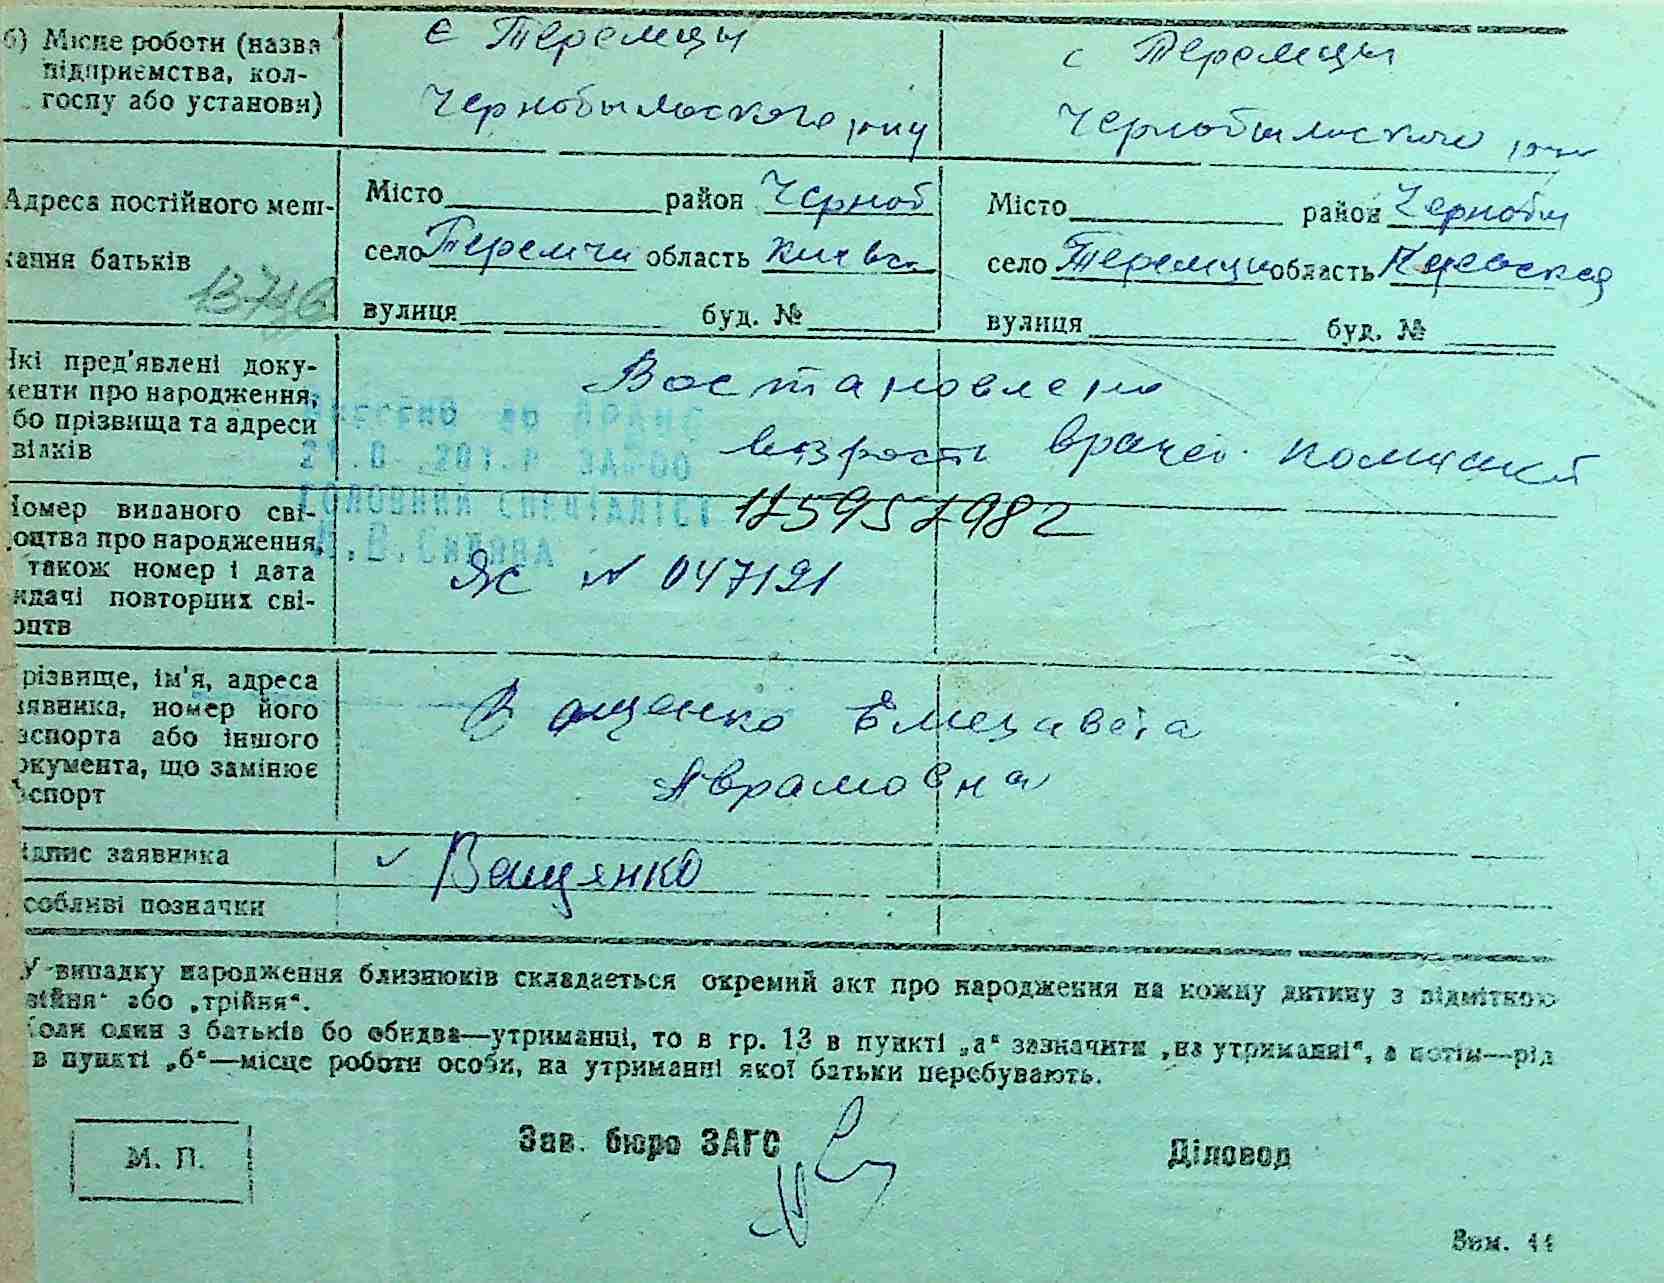 б) Місце роботи (назва
підприємства, кол-
госпу або установи)
с Теремцы
Чернобыльского рну
с Теремцы
Чернобыльского
Адреса постійного меш-
кання батьків
13746
Місто район Черноб
село Теремци область Киевск
вулиця буд. №
Місто район Чернобы
село Теремци область Киевская
вулиця буд. №
Які пред'явлені доку-
менти про народження,
або прізвища та адреси
свідків
Востановлено
возраст врачеб. комиссией
Внесено до ДРАЦС
ГОЛОВНИЙ СПЕЦІАЛІСТ
Номер виданого сві-
доцтва про народження,
також номер і дата
видачі повторних сві-
доцтв
175957982
ЯС № 047191
Прізвище, ім'я, адреса
заявника, номер його
паспорта або іншого
документа, що замінює
паспорт
Ващенко Елизавета
Аврамовна
Підпис заявника
✓ Ващянко
Особливі позначки
У випадку народження близнюків складається окремий акт про народження на кожну дитину з відміткою
„двійня“ або „трійня“.
Коли один з батьків бо обидва—утриманці, то в гр. 13 в пункті „а“ зазначити „на утриманні“, а потім—рід
в пункті „б“—місце роботи особи, на утриманні якої батьки перебувають.
М. П.
Зав. бюро ЗАГС
Діловод
Зам. 44